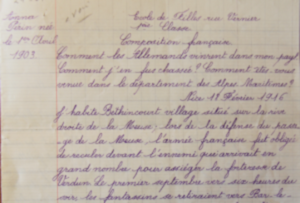 École de Filles
1ère Classe
le 1er Août
1903
Composition française
Comment les Allemands vinrent dans mon pays?
Comment j'en fus chassée? Comment êtes-vous
venue dans le département des Alpes Maritimes?
Nice 11 Février 1916
J'habite Béthincourt village situé sur la rive
droite de la Meuse; lors de la défense du passa-
ge de la Meuse l'armée française fut obligée
de reculer devant l'ennemi qui arrivait en
grand nombre pour assiéger la forteresse de
Verdun. Le premier septembre vers six heures du
soir les fantassins se retiraient vers Bar-le-